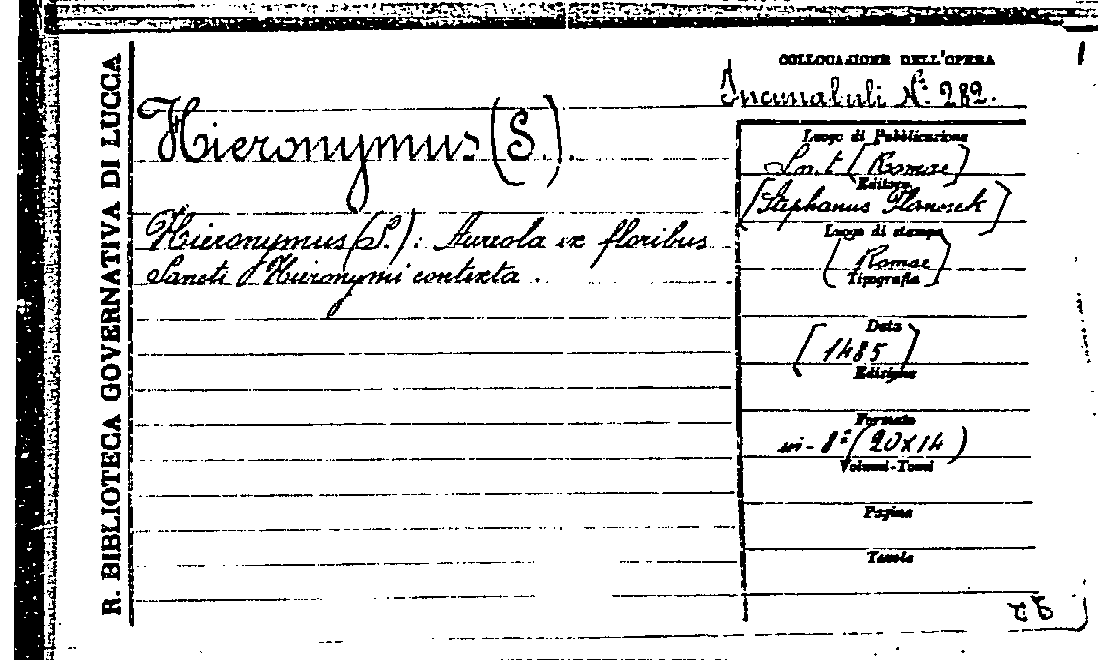 R. BIBLIOTECA GOVERNATIVA DI LUCCA
COLLOCAZIONE DELL'OPERA
Incunabuli N.º 282.
Hieronymus (S.).
Hieronymus (S.): Aureola ex floribus
Sancti Hieronymi contexta.
Luogo di Pubblicazione
S. n. t. [Romae]
Editore
[Stephanus Planck]
Luogo di stampa
[Romae]
Tipografia
Data
[1485]
Edizione
Formato
in-8º (20x14)
Volumi-Tomi
Pagine
Tavole